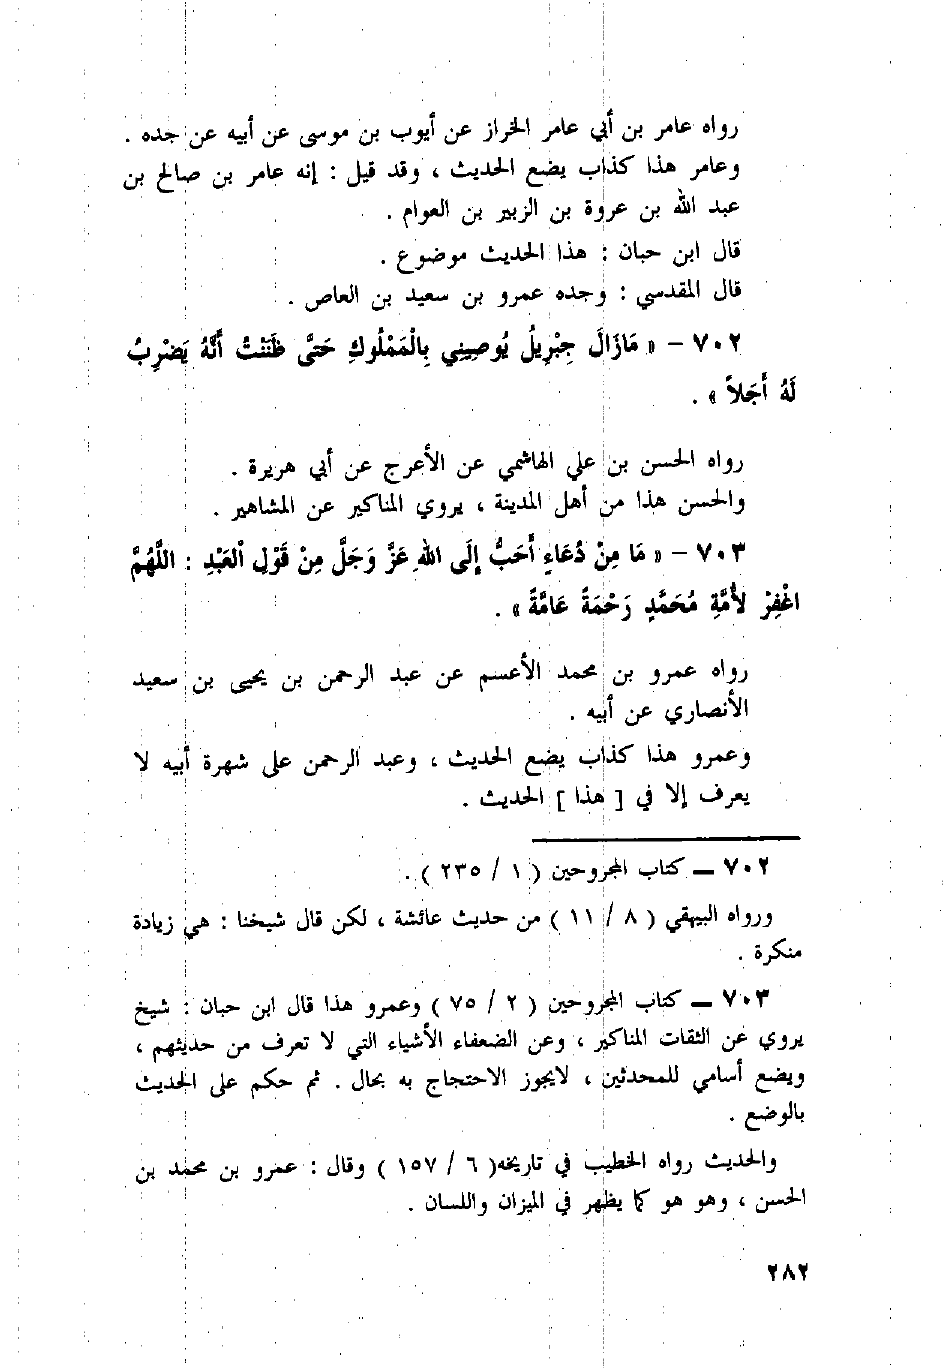 رواه عامر بن أبي عامر الخراز عن أيوب بن موسى عن أبيه عن جده .
وعامر هذا كذاب يضع الحديث ، وقد قيل : إنه عامر بن صالح بن
عبد الله بن عروة بن الزبير بن العوام .
قال ابن حبان : هذا الحديث موضوع .
قال المقدسي : وجده عمرو بن سعيد بن العاص .
٧٠٢ – « مَازَالَ جِبْرِيلُ يُوصِينِي بِالْمَمْلُوكِ حَتَّى ظَنَنْتُ أَنَّهُ يَضْرِبُ
لَهُ أَجَلاً » .
رواه الحسن بن علي الهاشمي عن الأعرج عن أبي هريرة .
والحسن هذا من أهل المدينة ، يروي المناكير عن المشاهير .
٧٠٣ – « مَا مِنْ دُعَاءٍ أَحَبُّ إِلَى اللهِ عَزَّ وَجَلَّ مِنْ قَوْلِ الْعَبْدِ : اللَّهُمَّ
اغْفِرْ لأُمَّةِ مُحَمَّدٍ رَحْمَةً عَامَّةً » .
رواه عمرو بن محمد الأعسم عن عبد الرحمن بن يحيى بن سعيد
الأنصاري عن أبيه .
وعمرو هذا كذاب يضع الحديث ، وعبد الرحمن على شهرة أبيه لا
يعرف إلا في [ هذا ] الحديث .
٧٠٢ ــ كتاب المجروحين ( ١ / ٢٣٥ ) .
ورواه البيهقي ( ٨ / ١١ ) من حديث عائشة ، لكن قال شيخنا : هي زيادة
منكرة .
٧٠٣ ــ كتاب المجروحين ( ٢ / ٧٥ ) وعمرو هذا قال ابن حبان : شيخ
يروي عن الثقات المناكير ، وعن الضعفاء الأشياء التي لا تعرف من حديثهم ،
ويضع أسامي للمحدثين ، لايجوز الاحتجاج به بحال . ثم حكم على الحديث
بالوضع .
والحديث رواه الخطيب في تاريخه( ٦ / ١٥٧ ) وقال : عمرو بن محمد بن
الحسن ، وهو هو كما يظهر في الميزان واللسان .
٢٨٢